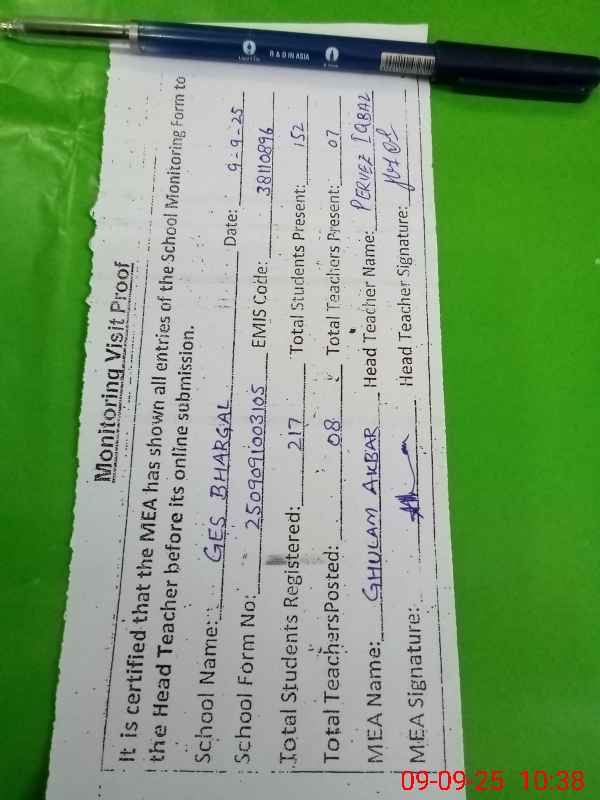 Monitoring Visit Proof
It is certified that the MEA has shown all entries of the School Monitoring Form to
the Head Teacher before its online submission.
School Name: GES BHARGAL Date: 9-9-25
School Form No: 2509091003105 EMIS Code: 38110896
Total Students Registered: 217 Total Students Present: 152
Total TeachersPosted: 08 Total Teachers Present: 07
MEA Name: GHULAM AKBAR Head Teacher Name: PERVEZ IQBAL
MEA Signature: Head Teacher Signature:
R & D IN ASIA
09-09-25 10:38